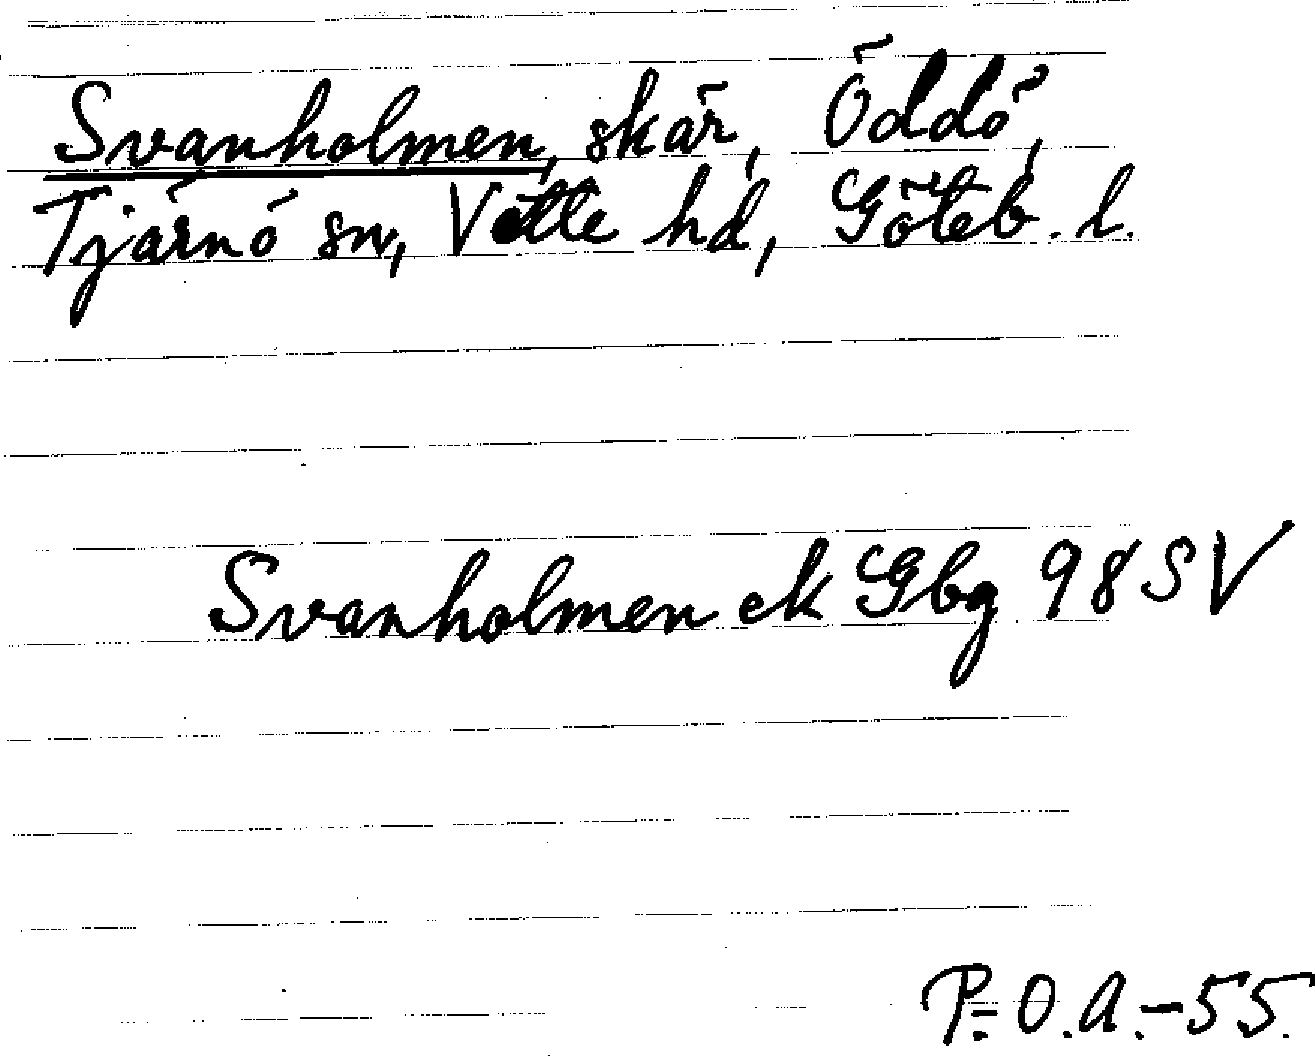 Svanholmen, skär, Öddö,
Tjärnö sn, Vette hd, Göteb. l.
Svanholmen ek Gbg 98 SV
P.O.A.-55.